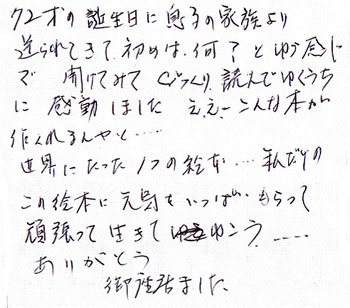 72才の誕生日に息子の家族より
送られてきて初めは、何?とゆう感じ
で 開けてみてびっくり、読んでゆくうち
に 感動しました ええーこんな本が
作くれるんやと……
世界にたった1つの絵本……私だけの
この絵本に元気をいっぱいもらって
頑張って生きてゆこう……
ありがとう
御座居ました